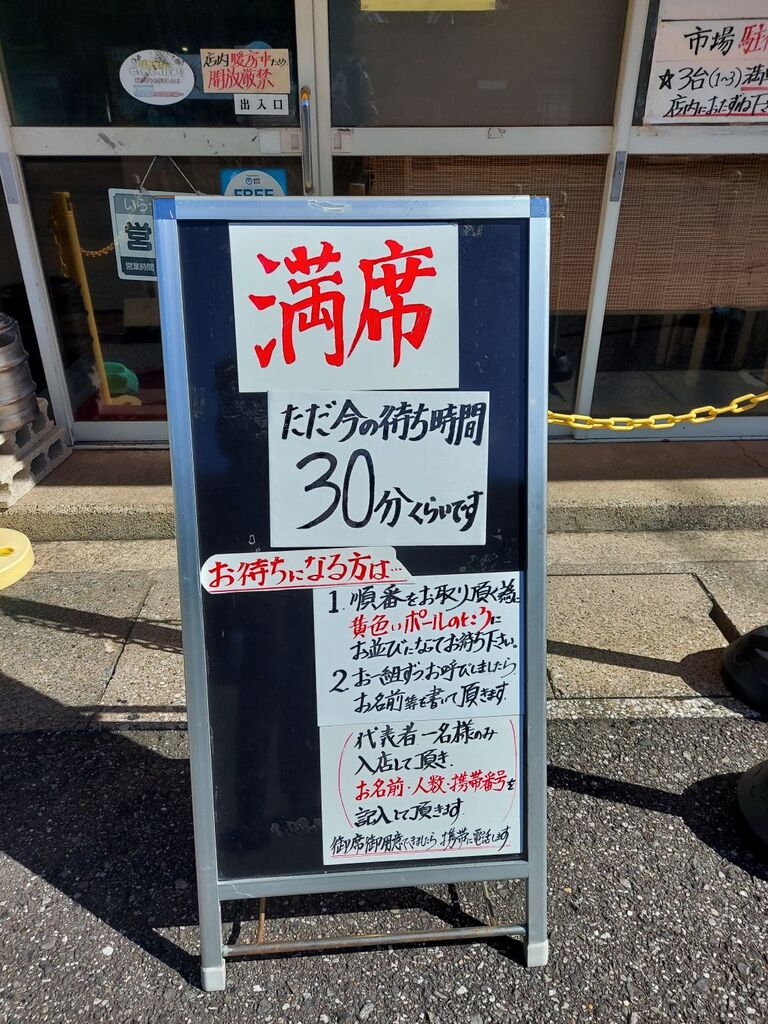 店内暖房中ため
開放厳禁
出入口
市場駐
☆3台(1~3)満
店内におたずね下
FREE
いら
営
営業時間
満席
ただ今の待ち時間
30分くらいです
お待ちになる方は…
1. 順番をお取り頂く為に
黄色いポールのところに
お並びになってお待ち下さい。
2. お一組ずつお呼びしましたら
お名前等を書いて頂きます
代表者一名様のみ
入店して頂き
お名前・人数・携帯番号を
記入して頂きます
御席御用意できましたら携帯に電話します